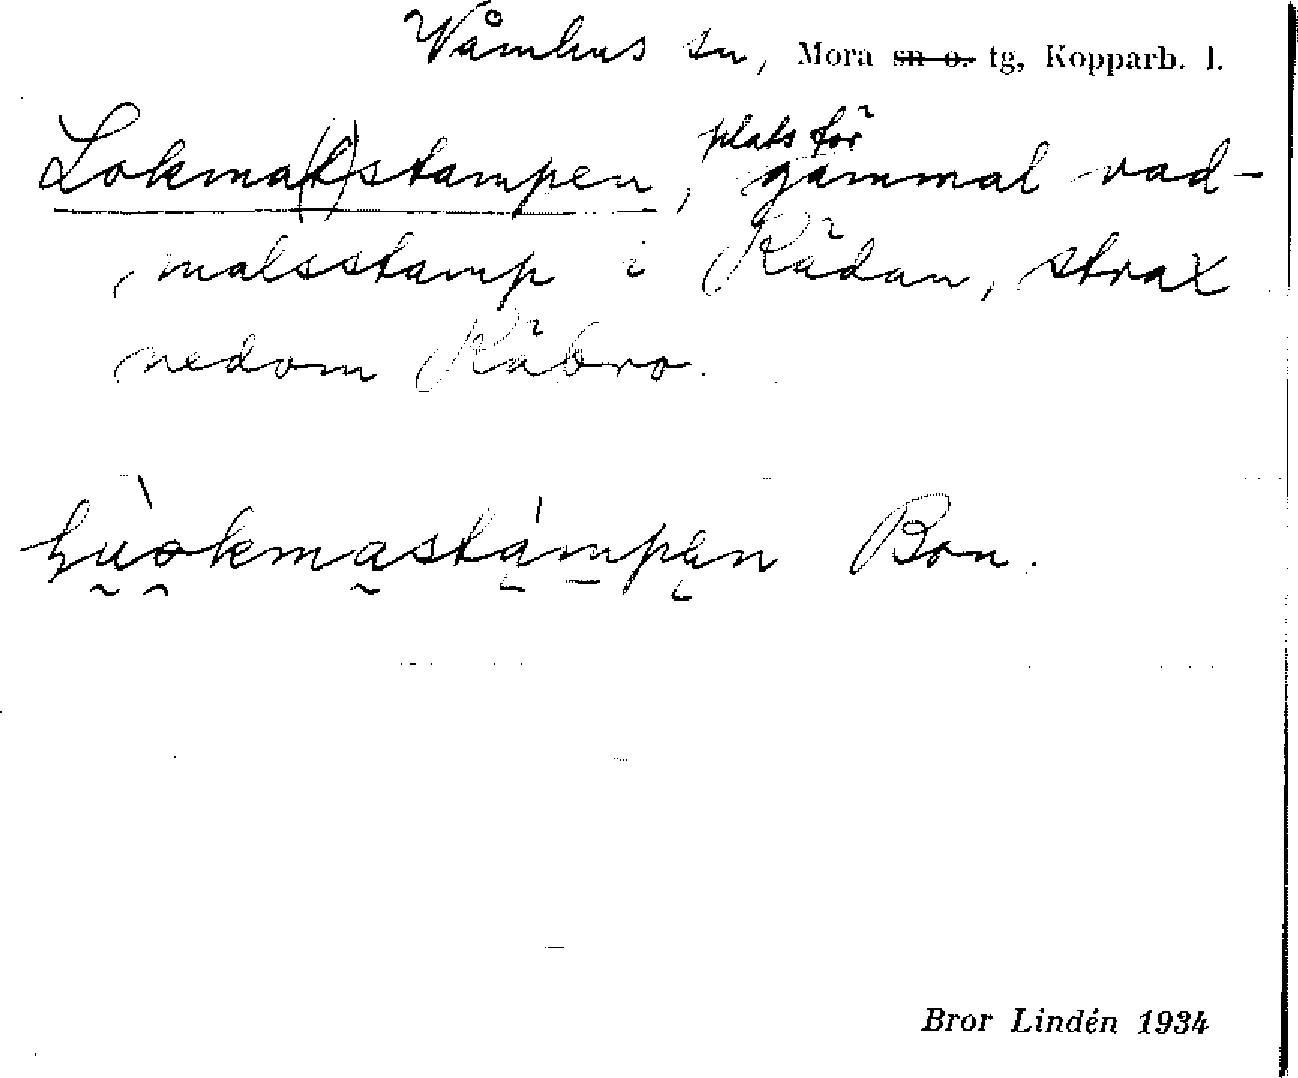 Våmhus sn, Mora sn o. tg, Kopparb. l.
Lokma(t)stampen, plats för gammal vad-
malsstamp i Rådan, strax
nedom Råbro.
Bon.
Bror Lindén 1934